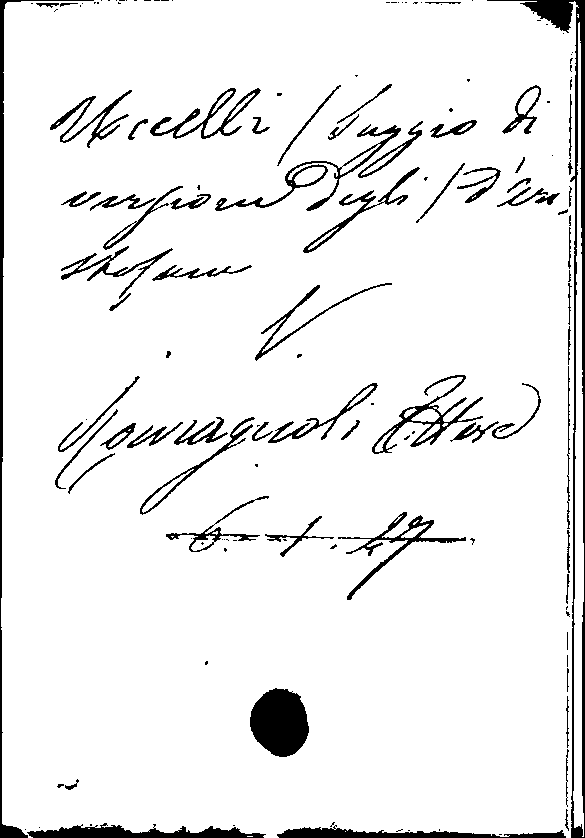 Uccelli / Saggio di
versione degli / d'Ari-
stofane
V.
Romagnoli Ettore
6. 1. 47